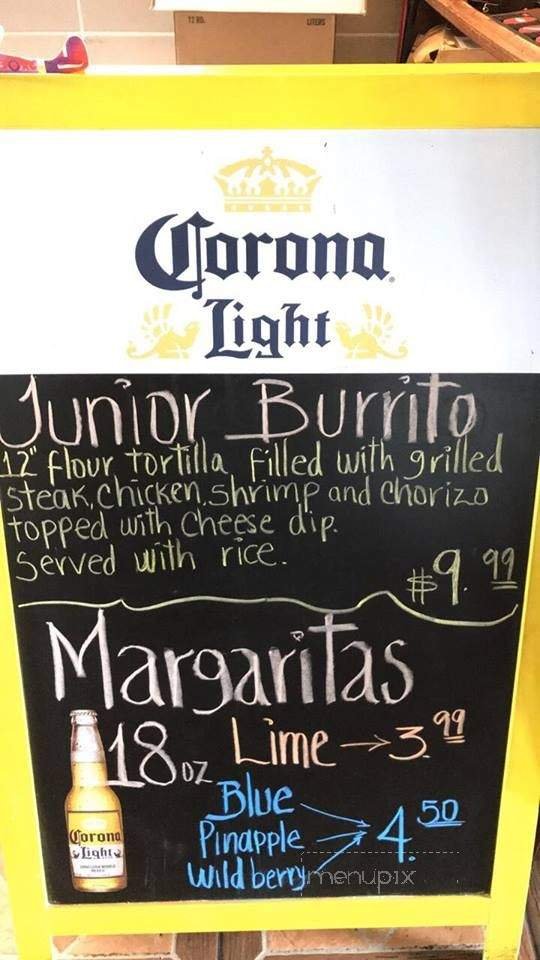 12 BO.
LITERS
Corona
Light
Junior Burrito
12" flour tortilla filled with grilled
steak, chicken, shrimp and chorizo
topped with cheese dip.
Served with rice.
$9.99
Margaritas
18oz Lime → 3.99
Blue
Pinapple → 4.50
wild berry
Corona
Light
menupix